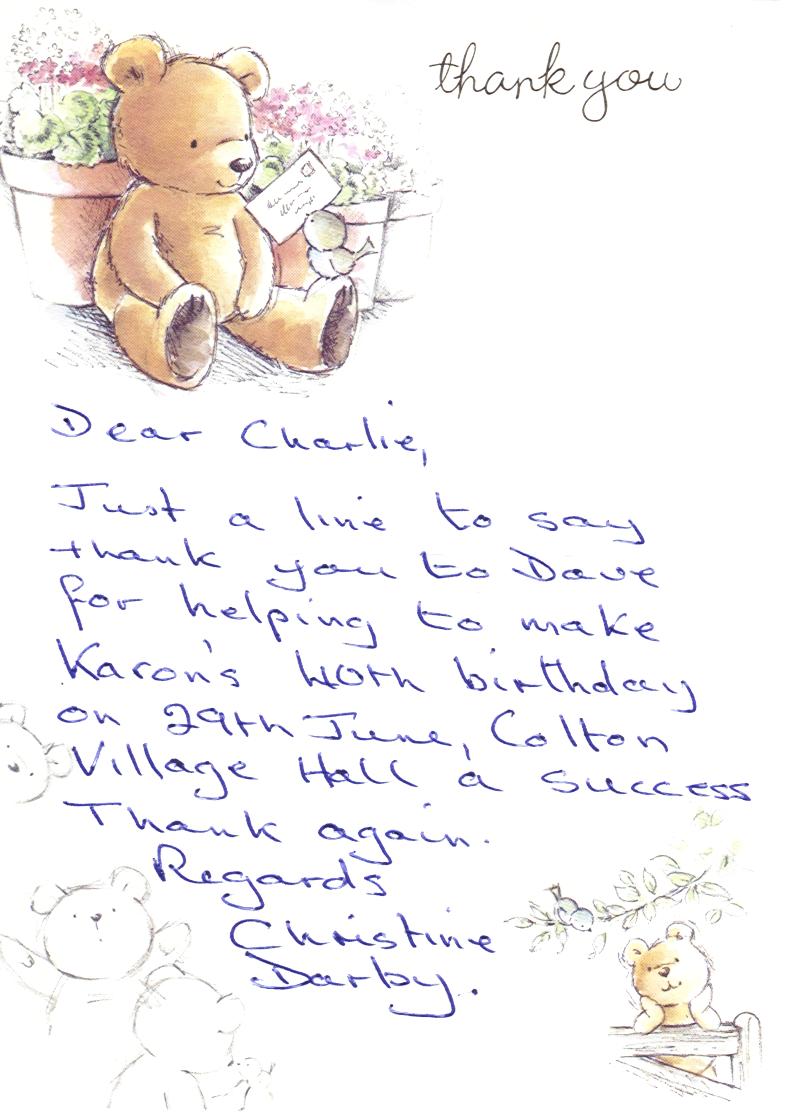 thank you
Dear Charlie,
Just a line to say
thank you to Dave
for helping to make
Karon's 40th birthday
on 29th June, Colton
Village Hall a success
Thank again.
Regards
Christine
Darby.